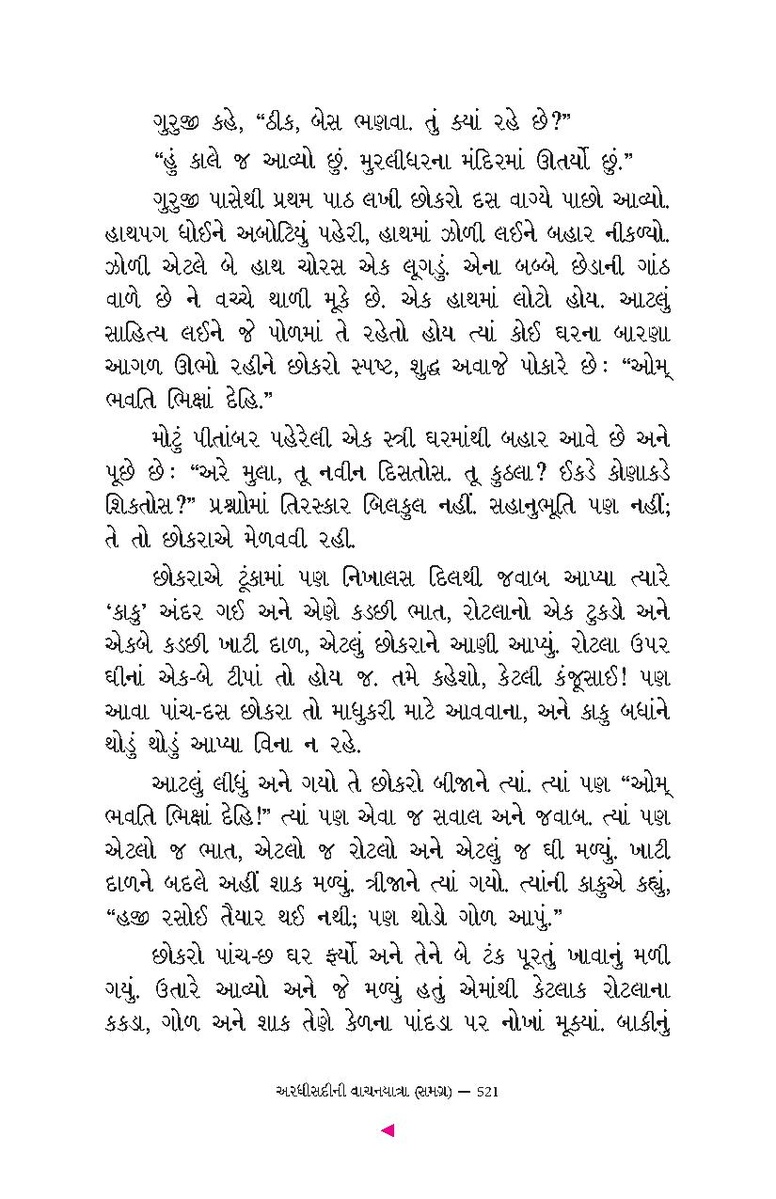 ગુરુજી કહે, “ઠીક, બેસ ભણવા. તું ક્યાં રહે છે?”
“હું કાલે જ આવ્યો છું. મુરલીધરના મંદિરમાં ઊતર્યો છું.”
ગુરુજી પાસેથી પ્રથમ પાઠ લખી છોકરો દસ વાગ્યે પાછો આવ્યો.
હાથપગ ધોઈને અબોટિયું પહેરી, હાથમાં ઝોળી લઈને બહાર નીકળ્યો.
ઝોળી એટલે બે હાથ ચોરસ એક લૂગડું. એના બબ્બે છેડાની ગાંઠ
વાળે છે ને વચ્ચે થાળી મૂકે છે. એક હાથમાં લોટો હોય. આટલું
સાહિત્ય લઈને જે પોળમાં તે રહેતો હોય ત્યાં કોઈ ઘરના બારણા
આગળ ઊભો રહીને છોકરો સ્પષ્ટ, શુદ્ધ અવાજે પોકારે છે : “ઓમ્
ભવતિ ભિક્ષાં દેહિ.”
મોટું પીતાંબર પહેરેલી એક સ્ત્રી ઘરમાંથી બહાર આવે છે અને
પૂછે છે : “અરે મુલા, તૂ નવીન દિસતોસ. તૂ કુઠલા? ઈકડે કોણાકડે
શિકતોસ?” પ્રશ્નોમાં તિરસ્કાર બિલકુલ નહીં. સહાનુભૂતિ પણ નહીં;
તે તો છોકરાએ મેળવવી રહી.
છોકરાએ ટૂંકામાં પણ નિખાલસ દિલથી જવાબ આપ્યા ત્યારે
‘કાકુ’ અંદર ગઈ અને એણે કડછી ભાત, રોટલાનો એક ટુકડો અને
એકબે કડછી ખાટી દાળ, એટલું છોકરાને આણી આપ્યું. રોટલા ઉપર
ઘીનાં એક-બે ટીપાં તો હોય જ. તમે કહેશો, કેટલી કંજૂસાઈ! પણ
આવા પાંચ-દસ છોકરા તો માધુકરી માટે આવવાના, અને કાકુ બધાંને
થોડું થોડું આપ્યા વિના ન રહે.
આટલું લીધું અને ગયો તે છોકરો બીજાને ત્યાં. ત્યાં પણ “ઓમ્
ભવતિ ભિક્ષાં દેહિ!” ત્યાં પણ એવા જ સવાલ અને જવાબ. ત્યાં પણ
એટલો જ ભાત, એટલો જ રોટલો અને એટલું જ ઘી મળ્યું. ખાટી
દાળને બદલે અહીં શાક મળ્યું. ત્રીજાને ત્યાં ગયો. ત્યાંની કાકુએ કહ્યું,
“હજી રસોઈ તૈયાર થઈ નથી; પણ થોડો ગોળ આપું.”
છોકરો પાંચ-છ ઘર ફર્યો અને તેને બે ટંક પૂરતું ખાવાનું મળી
ગયું. ઉતારે આવ્યો અને જે મળ્યું હતું એમાંથી કેટલાક રોટલાના
કકડા, ગોળ અને શાક તેણે કેળના પાંદડા પર નોખાં મૂક્યાં. બાકીનું
અરધીસદીની વાચનયાત્રા (સમગ્ર) — 521